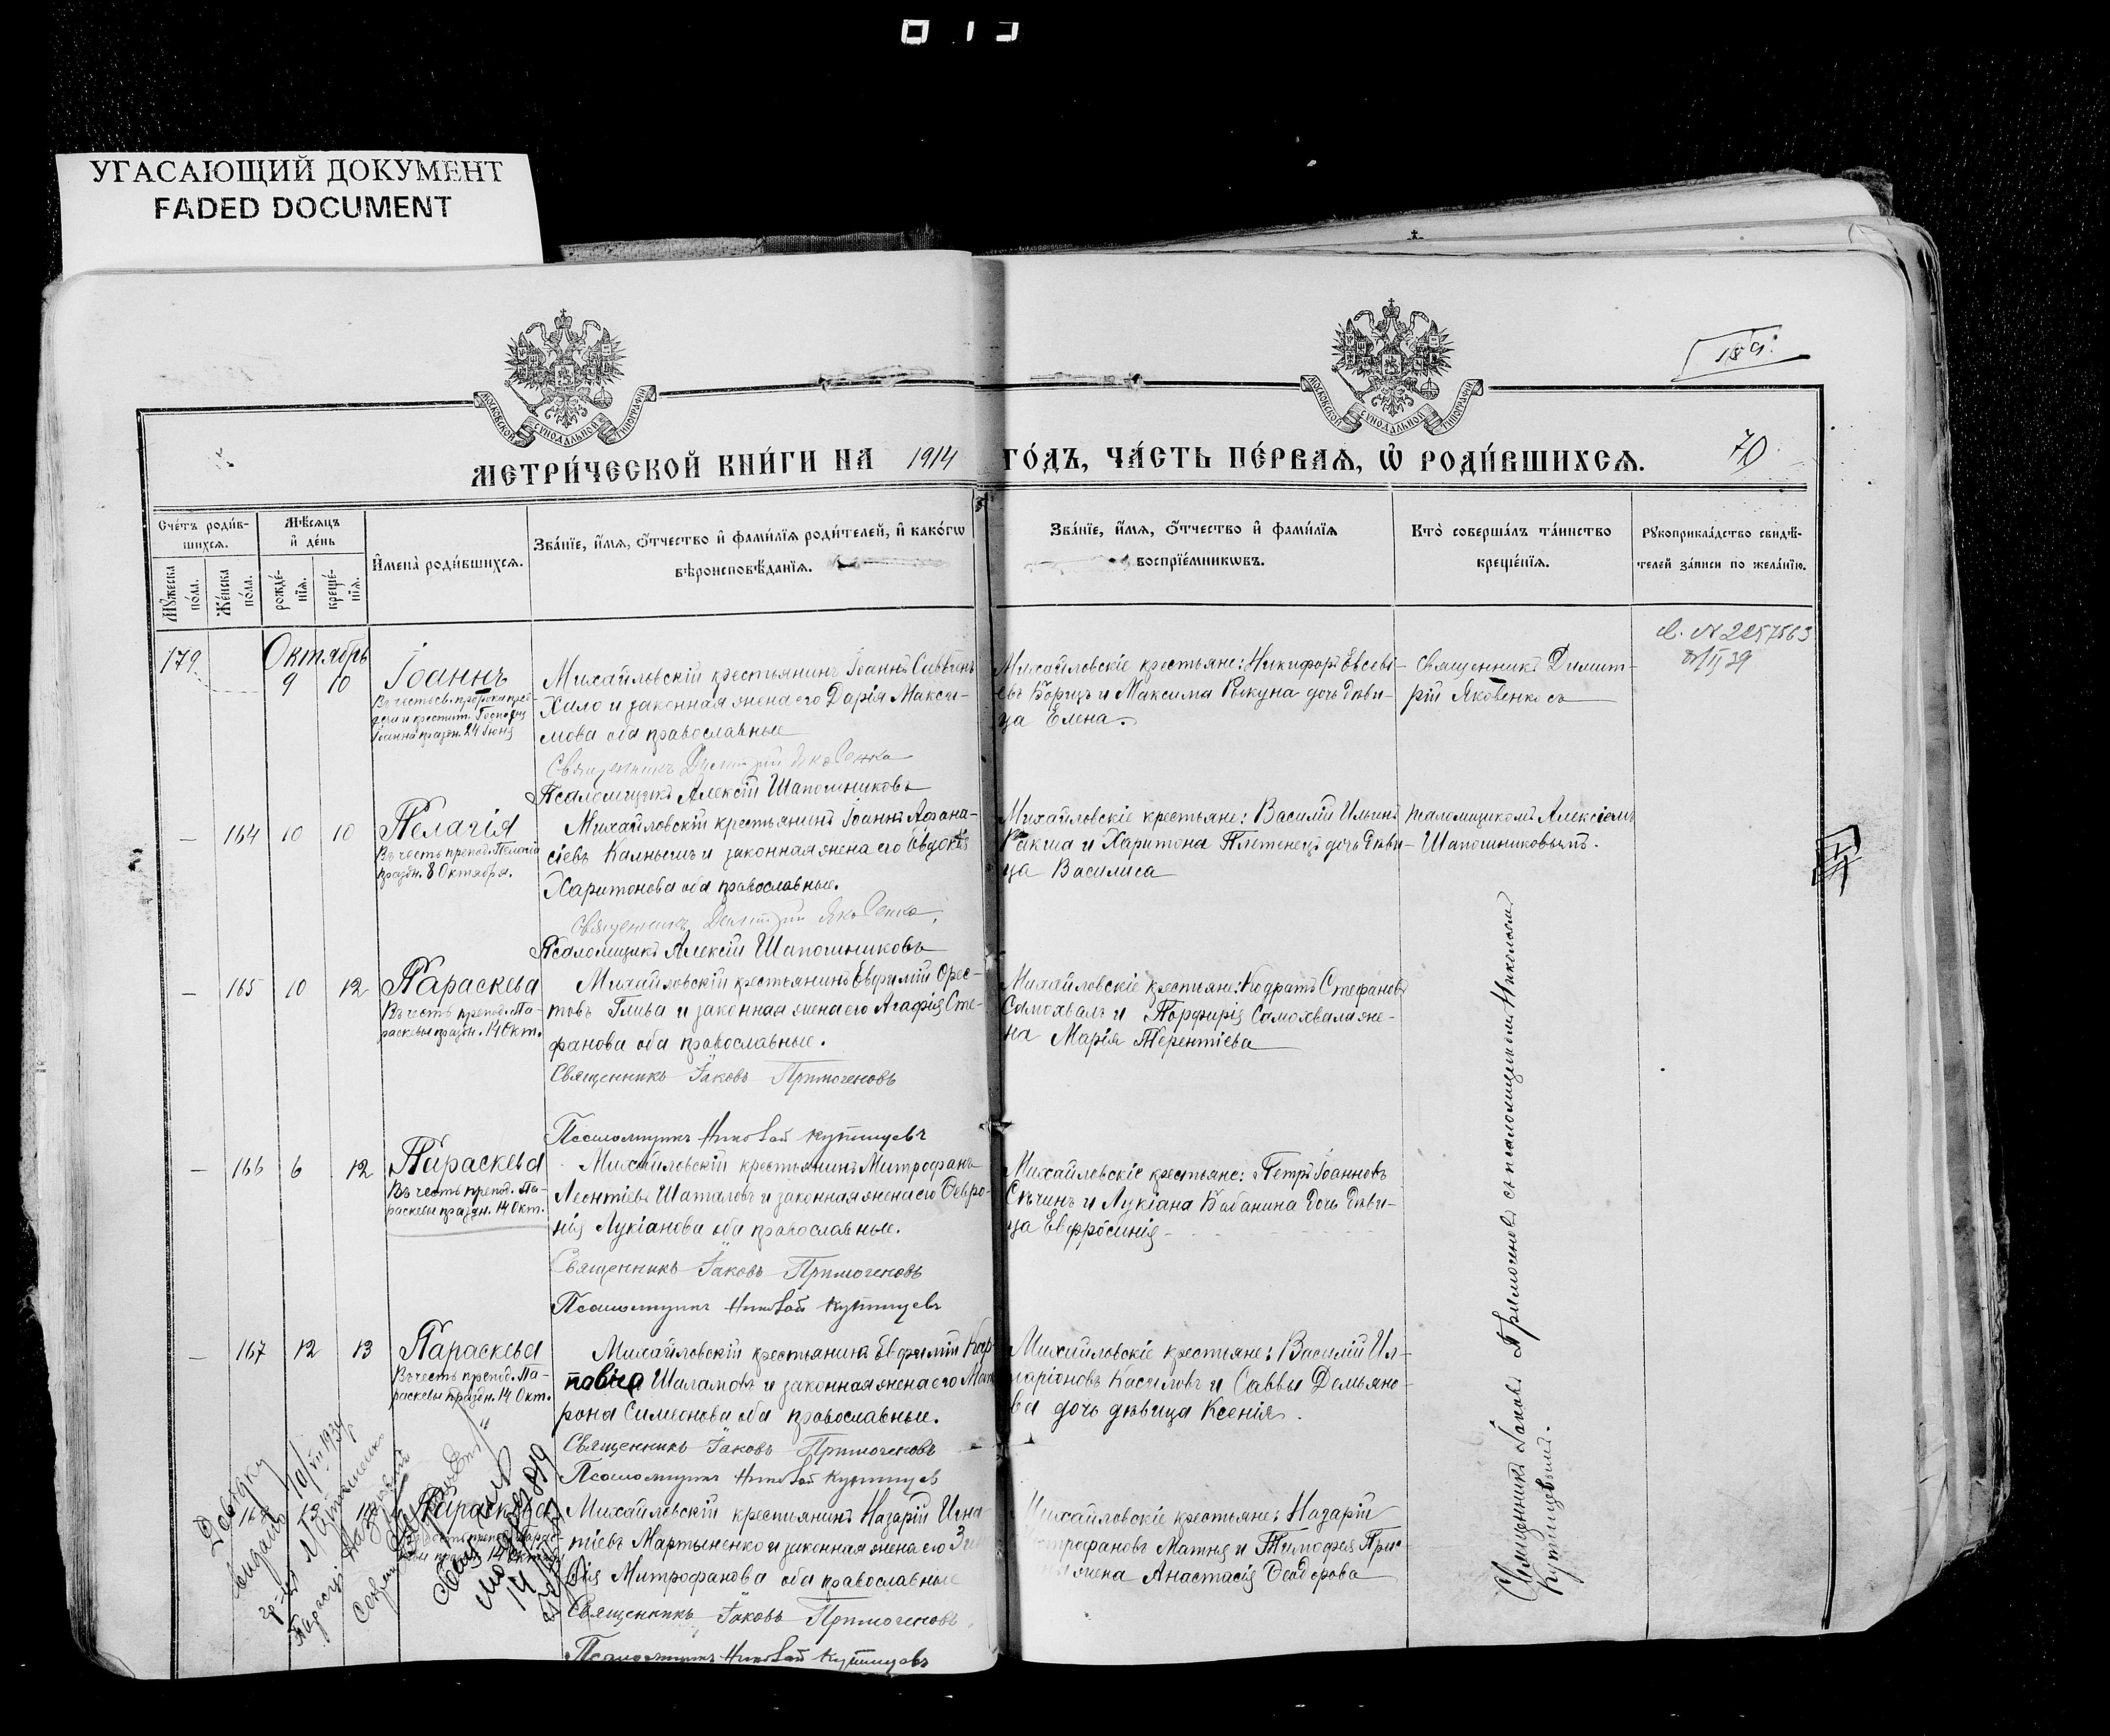 УГАСАЮЩИЙ ДОКУМЕНТ
FADED DOCUMENT
МОСКОВСКОЙ СУНОДАЛЬНОЙ ТИПОГРАФІИ
МОСКОВСКОЙ СУНОДАЛЬНОЙ ТИПОГРАФІИ
МЕТРИ́ЧЕСКОЙ КНИ́ГИ НА 1914 ГО́ДЪ, ЧА́СТЬ ПЕ́РВАѦ, Ѡ҆ РОДИ́ВШИХСѦ. 70
Сче́тъ роди́в-
шихсѧ.
Мꙋ́жеска по́ла.
Же́нска по́ла.
Мѣ́сѧцъ
и҆ де́нь
рожде́-
нїѧ.
креще́-
нїѧ.
И҆мена̀ роди́вшихсѧ.
Зва́нїе, и҆́мѧ, ѻ҆́тчество и҆ фами́лїѧ роди́телей, и҆ како́гѡ
вѣроисповѣ́данїѧ.
Зва́нїе, и҆́мѧ, ѻ҆́тчество и҆ фами́лїѧ
воспрїе́мникѡвъ.
Кто̀ соверша́лъ та́инство
креще́нїѧ.
Рꙋкоприкла́дство свидѣ́-
телей за́писи по жела́нїю.
Октябрь
179
9 10
Іоаннъ
Въ честь св. пророка пред-
течи и крестит. Господня
Іоанна праздн. 24 Іюня
Михайловскій крестьянинъ Іоаннъ Саввинъ
Хало и законная жена его Дарія Макси-
мова оба православные
Священникъ Димитрій Яковенко
Псаломщикъ Алексій Шапошниковъ
Михайловскіе крестьяне: Никифоръ Евсеві-
евъ Борицъ и Максима дочь дѣви-
ца Елена.
Священникъ Димит-
рій Яковенко съ
— 164 10 10
Пелагія
Въ честь препод. Пелагіи
праздн. 8 Октября.
Михайловскій крестьянинъ Іоаннъ Афана-
сіевъ Калнышъ и законная жена его Евдокія
Харитонова оба православные.
Священникъ Димитрій Яковенко
Псаломщикъ Алексій Шапошниковъ
Михайловскіе крестьяне: Василій Ильинъ
Ракша и Харитона Плетенецъ дочь дѣви-
ца Василиса
псаломщикомъ Алексіемъ
Шапошниковымъ.
— 165 10 12
Параскева
Въ честь препод. Па-
раскевы праздн. 14 Окт.
Михайловскій крестьянинъ Евфимій Орес-
товъ Глива и законная жена его Агафія Сте-
фанова оба православные.
Священникъ Іаковъ Примогеновъ
Псаломщикъ Николай Купинцевъ
Михайловскіе крестьяне: Кодратъ Стефановъ
Самохвалъ и Порфирія Самохвала же-
на Марія Терентіева
— 166 6 12
Параскева
Въ честь препод. Па-
раскевы праздн. 14 Окт.
Михайловскій крестьянинъ Митрофанъ
Леонтіевъ Шаталовъ и законная жена его Февро-
нія Лукіанова оба православные.
Священникъ Іаковъ Примогеновъ
Псаломщикъ Николай Купинцевъ
Михайловскіе крестьяне: Петръ Іоанновъ
Сѣчинъ и Лукіана Бабанина дочь дѣви-
ца Евфросинія
— 167 12 13
Параскева
Въ честь препод. Па-
раскевы праздн. 14 Окт.
Михайловскій крестьянинъ Евфимій Кар-
повичъ Шаламовъ и законная жена его Мат
рона Симеонова оба православные.
Священникъ Іаковъ Примогеновъ
Псаломщикъ Николай Купинцев
Михайловскіе крестьяне: Василій Ил-
ларіоновъ Касиловъ и Саввы Демьяно-
ва дочь дѣвица Ксенія.
Параскева
Михайловскій крестьянинъ Назарій Игна
тіевъ Мартыненко и законная жена его
Митрофанова оба православные
Священникъ Іаковъ Примогеновъ
Псаломщикъ Николай Купинцевъ
Михайловскіе крестьяне: Назарій
Митрофановъ Матня и Тимофея
жена Анастасія Ѳеодорова
Священникъ Іаковъ Примогеновъ съ псаломщикомъ Николаемъ
Купинцевымъ.
Довідку
видано 10/VII 1939